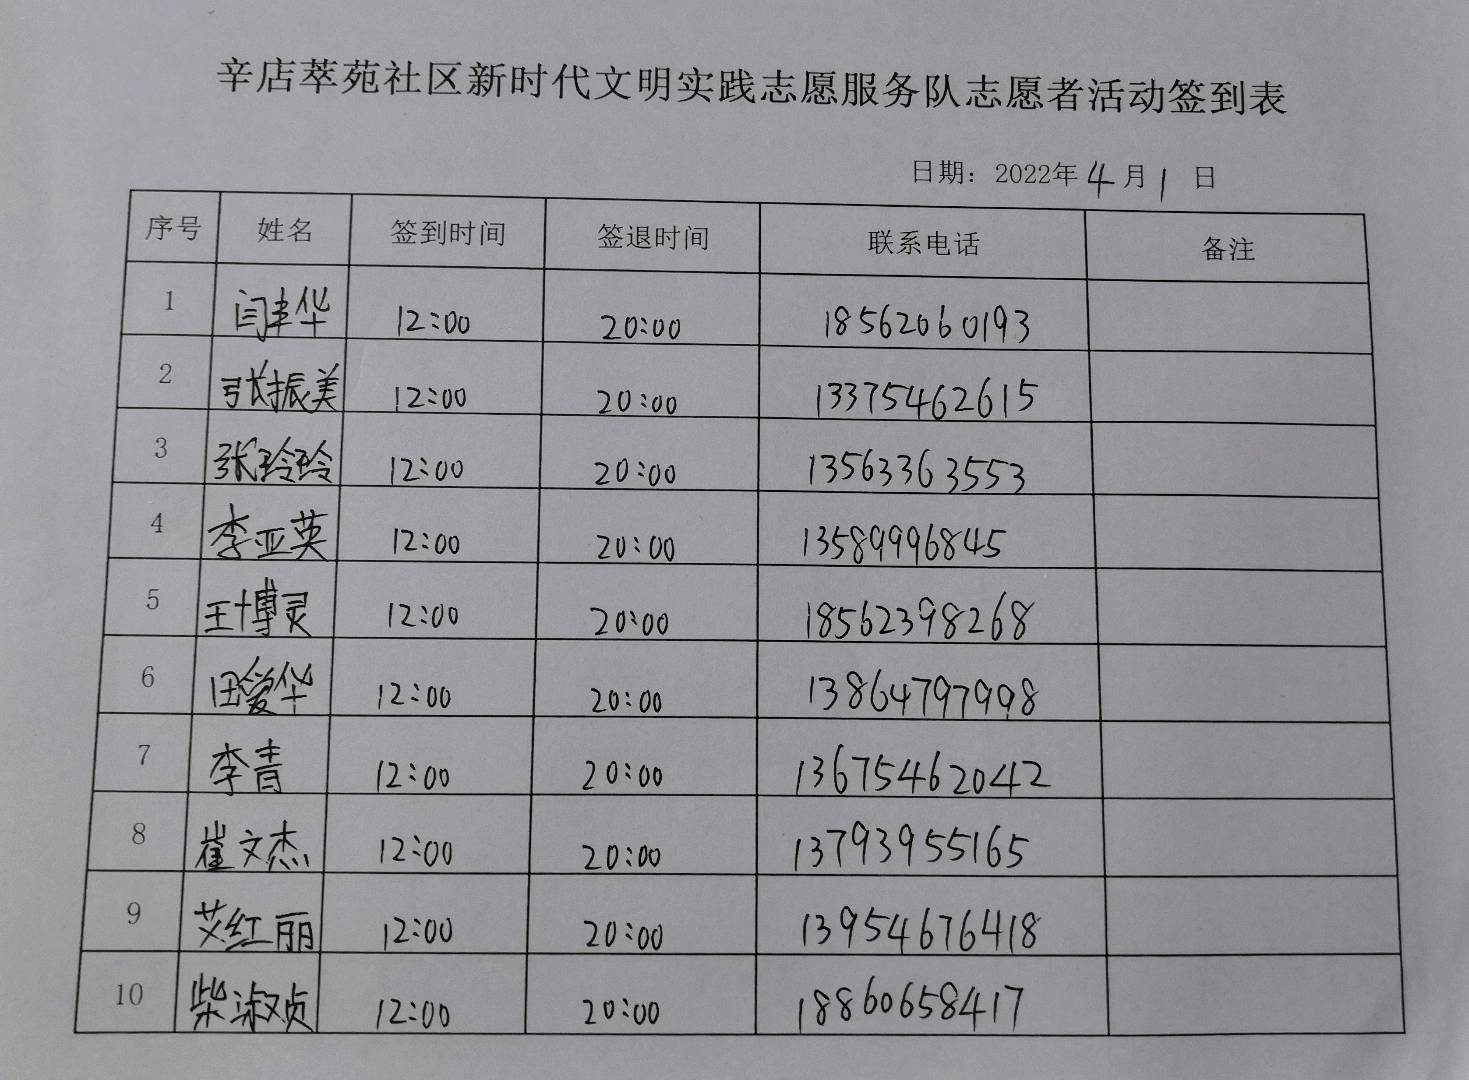 辛店萃苑社区新时代文明实践志愿服务队志愿者活动签到表
日期：2022年4月1日
序号 姓名 签到时间 签退时间 联系电话 备注
1 闫丰华 12:00 20:00 18562060193
2 张振美 12:00 20:00 13375462615
3 张玲玲 12:00 20:00 13563363553
4 李亚英 12:00 20:00 13589996845
5 王博灵 12:00 20:00 18562398268
6 田爱华 12:00 20:00 13864797998
7 李青 12:00 20:00 13675462042
8 崔文杰 12:00 20:00 13793955165
9 艾红丽 12:00 20:00 13954676418
10 柴淑贞 12:00 20:00 18860658417